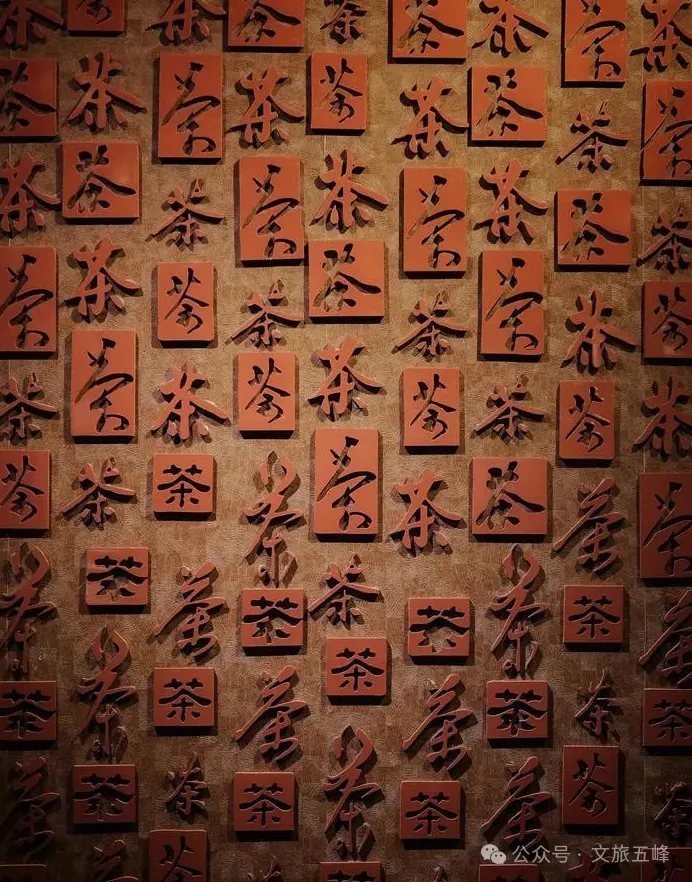 茶 茶 茶 茶 茶 茶 茶 茶 茶
茶 茶 茶 茶 茶 茶 茶 茶 茶
茶 茶 茶 茶 茶 茶 茶 茶 茶
茶 茶 茶 茶 茶 茶 茶 茶 茶
茶 茶 茶 茶 茶 茶 茶 茶 茶
茶 茶 茶 茶 茶 茶 茶 茶 茶
茶 茶 茶 茶 茶 茶 茶 茶 茶
茶 茶 茶 茶 茶 茶 茶 茶 茶
茶 茶 茶 茶 茶 茶 茶 茶 茶
茶 茶
公众号 · 文旅五峰